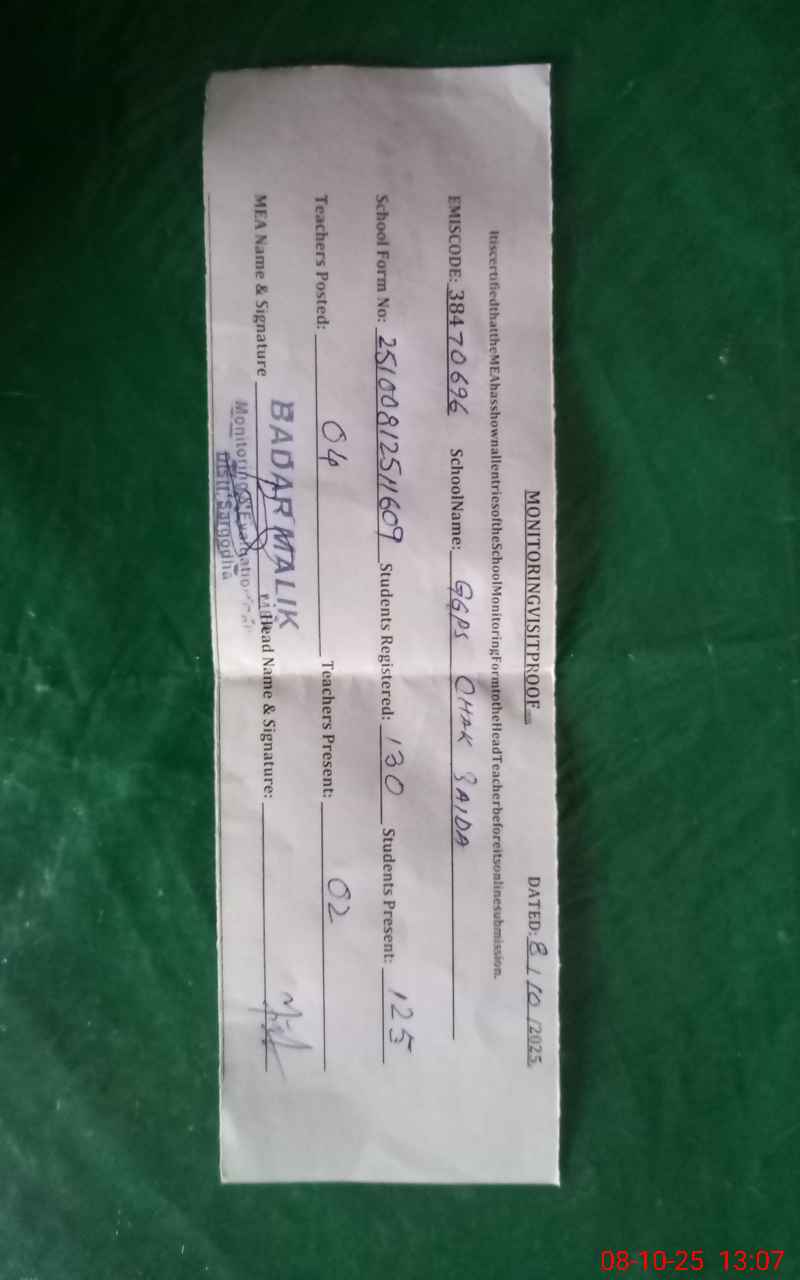 MONITORINGVISITPROOF
DATED: 8/10/2025
ItiscertifiedthattheMEAhasshownallentriesoftheSchoolMonitoringFormtotheHeadTeacherbeforeitsonlinesubmission.
EMISCODE: 38470696 SchoolName: GGPS CHAK SAIDA
School Form No: 25100812511609 Students Registered: 130 Students Present: 125
Teachers Posted: 04 Teachers Present: 02
MEA Name & Signature BADAR MALIK Head Name & Signature:
Monitoring & Evaluation
Distt. Sargodha
08-10-25 13:07